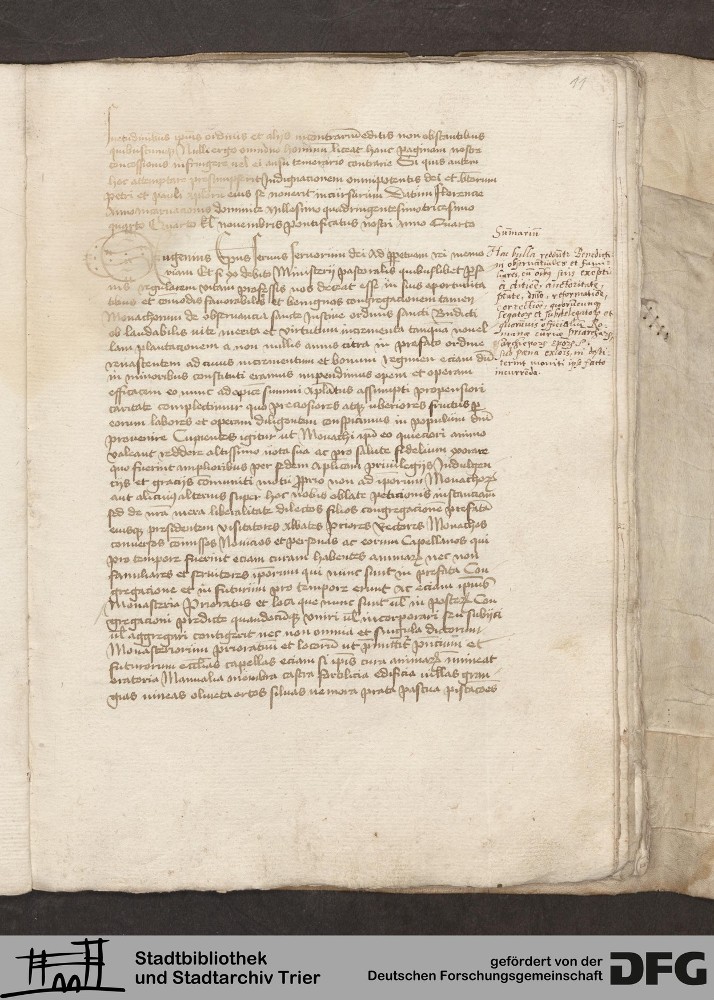 11
ipius ordinis et alijs incontrarium editis non obstantibus
quibuscumqz Nulli ergo omnino hominum liceat hanc paginam nostre
concessionis infringere vel ei ausu temerario contraire Si quis autem
hoc attemptare presumpserit Indignacionem omnipotentis dei et btorum
petri et pauli eius se nouerit incursurum Datum florencie
Anno incarnacionis dominice Millesimo quadringentesimotricesimo
quarto Quarto kl nouembris pontificatus nostri Anno Quarto
Sumarium
Eugenius Eps seruus seruorum dei Ad ppetuam rei memo
riam Et si ex debito Ministerij pastoralis quibuslibet
regularem vitam professis nos deceat esse in suis oportunita
tibus et comodis fauorabiles et benignos congregacionem tamen
Monachorum de obseruancia sancte Iustine ordinis sancti Bndicti
ob laudabilis vite merita et virtutum incrementa tanqua nouel
lam plantacionem a non nullis annis citra in prefato ordine
renascentem ad cuius incrementum et bonum regimen eciam dum
in minoribus constituti eramus impendimus opem et operam
efficacem eo nunc ad apicem summi aplatus assumpti propensiori
caritate complectimur quo preciosiores atqz vberiores fructus p
eorum labores et operam diligentem conspicimus in populum
prouenire Cupientes igitur ut Monachi ipi eo quieciori animo
valeant reddere altissimo vota sua ac pro salute fidelium
quo fuerint amplioribus per sedem Aplicam priuilegijs Indulgen
cijs et gracijs comuniti motu pprio non ad ipsorum Monachorum
aut alicuius alterius super hoc nobis oblate peticionis instanciam
sed de nra mera liberalitate dilectos filios congregacione prefata
eiusqz presidentem visitatores Abbates Priores Rectores Monachos
conuersos comissos Nouicios et personas ac eorum Capellanos qui
pro tempore fuerint eciam curam habentes animarum nec non
familiares et seruitores ipsorum qui nunc sunt in prefata Con
gregacione et in futurum pro tempore erunt Ac eciam ipius
Monasteria Prioratus et loca que nunc sunt ul in posterum Con
gregacioni predicte quandocumqz vniri ul incorporari seu subijci
ul aggregari contigerit nec non omnia et singula dictorum
Monasteriorum prioratuum et locorum ut et
futurorum ecclias capellas eciam si ipis cura animarum immineat
oratoria Manualia membra castra edificia villas gran
gias vineas oliueta ortos siluas nemora prata pascua piscacões
Hac bulla Benedicti
in obseruantiales et fami
liares, cum oibus suis exepti
a ditioe, auctoritate,
ptate, dnio, reformatioe,
correctioe, quorumcunqz
legatorz et subdelegatorz et
officialiu Ro
manae curiae
archiepoz epoz
sub pena exciois, ni desti
terint moniti ipso facto
incurreda.
Stadtbibliothek
und Stadtarchiv Trier
gefördert von der
Deutschen Forschungsgemeinschaft
DFG